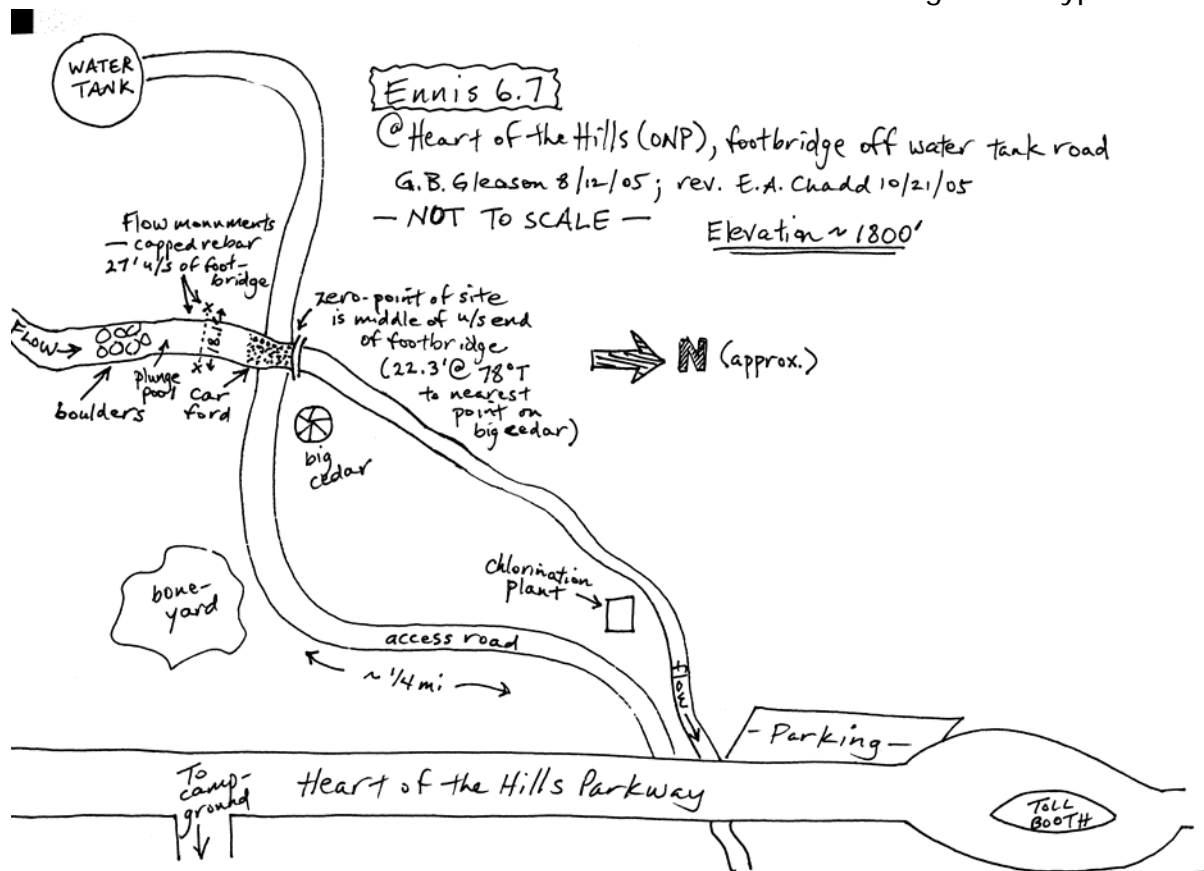 WATER
TANK
Ennis 6.7
@ Heart of the Hills (ONP), footbridge off water tank road
G.B. Gleason 8/12/05; rev. E.A. Chadd 10/21/05
— NOT TO SCALE —
Elevation ~ 1800'
Flow monuments
— capped rebar
27' u/s of foot-
bridge
zero-point of site
is middle of u/s end
of footbridge
(22.3' @ 78°T
to nearest
point on
big cedar)
N (approx.)
FLOW →
18.1'
boulders
plunge
pool
car
ford
big
cedar
bone-
yard
chlorination
plant
access road
~ 1/4 mi
flow
- Parking -
To
camp-
ground
Heart of the Hills Parkway
TOLL
BOOTH